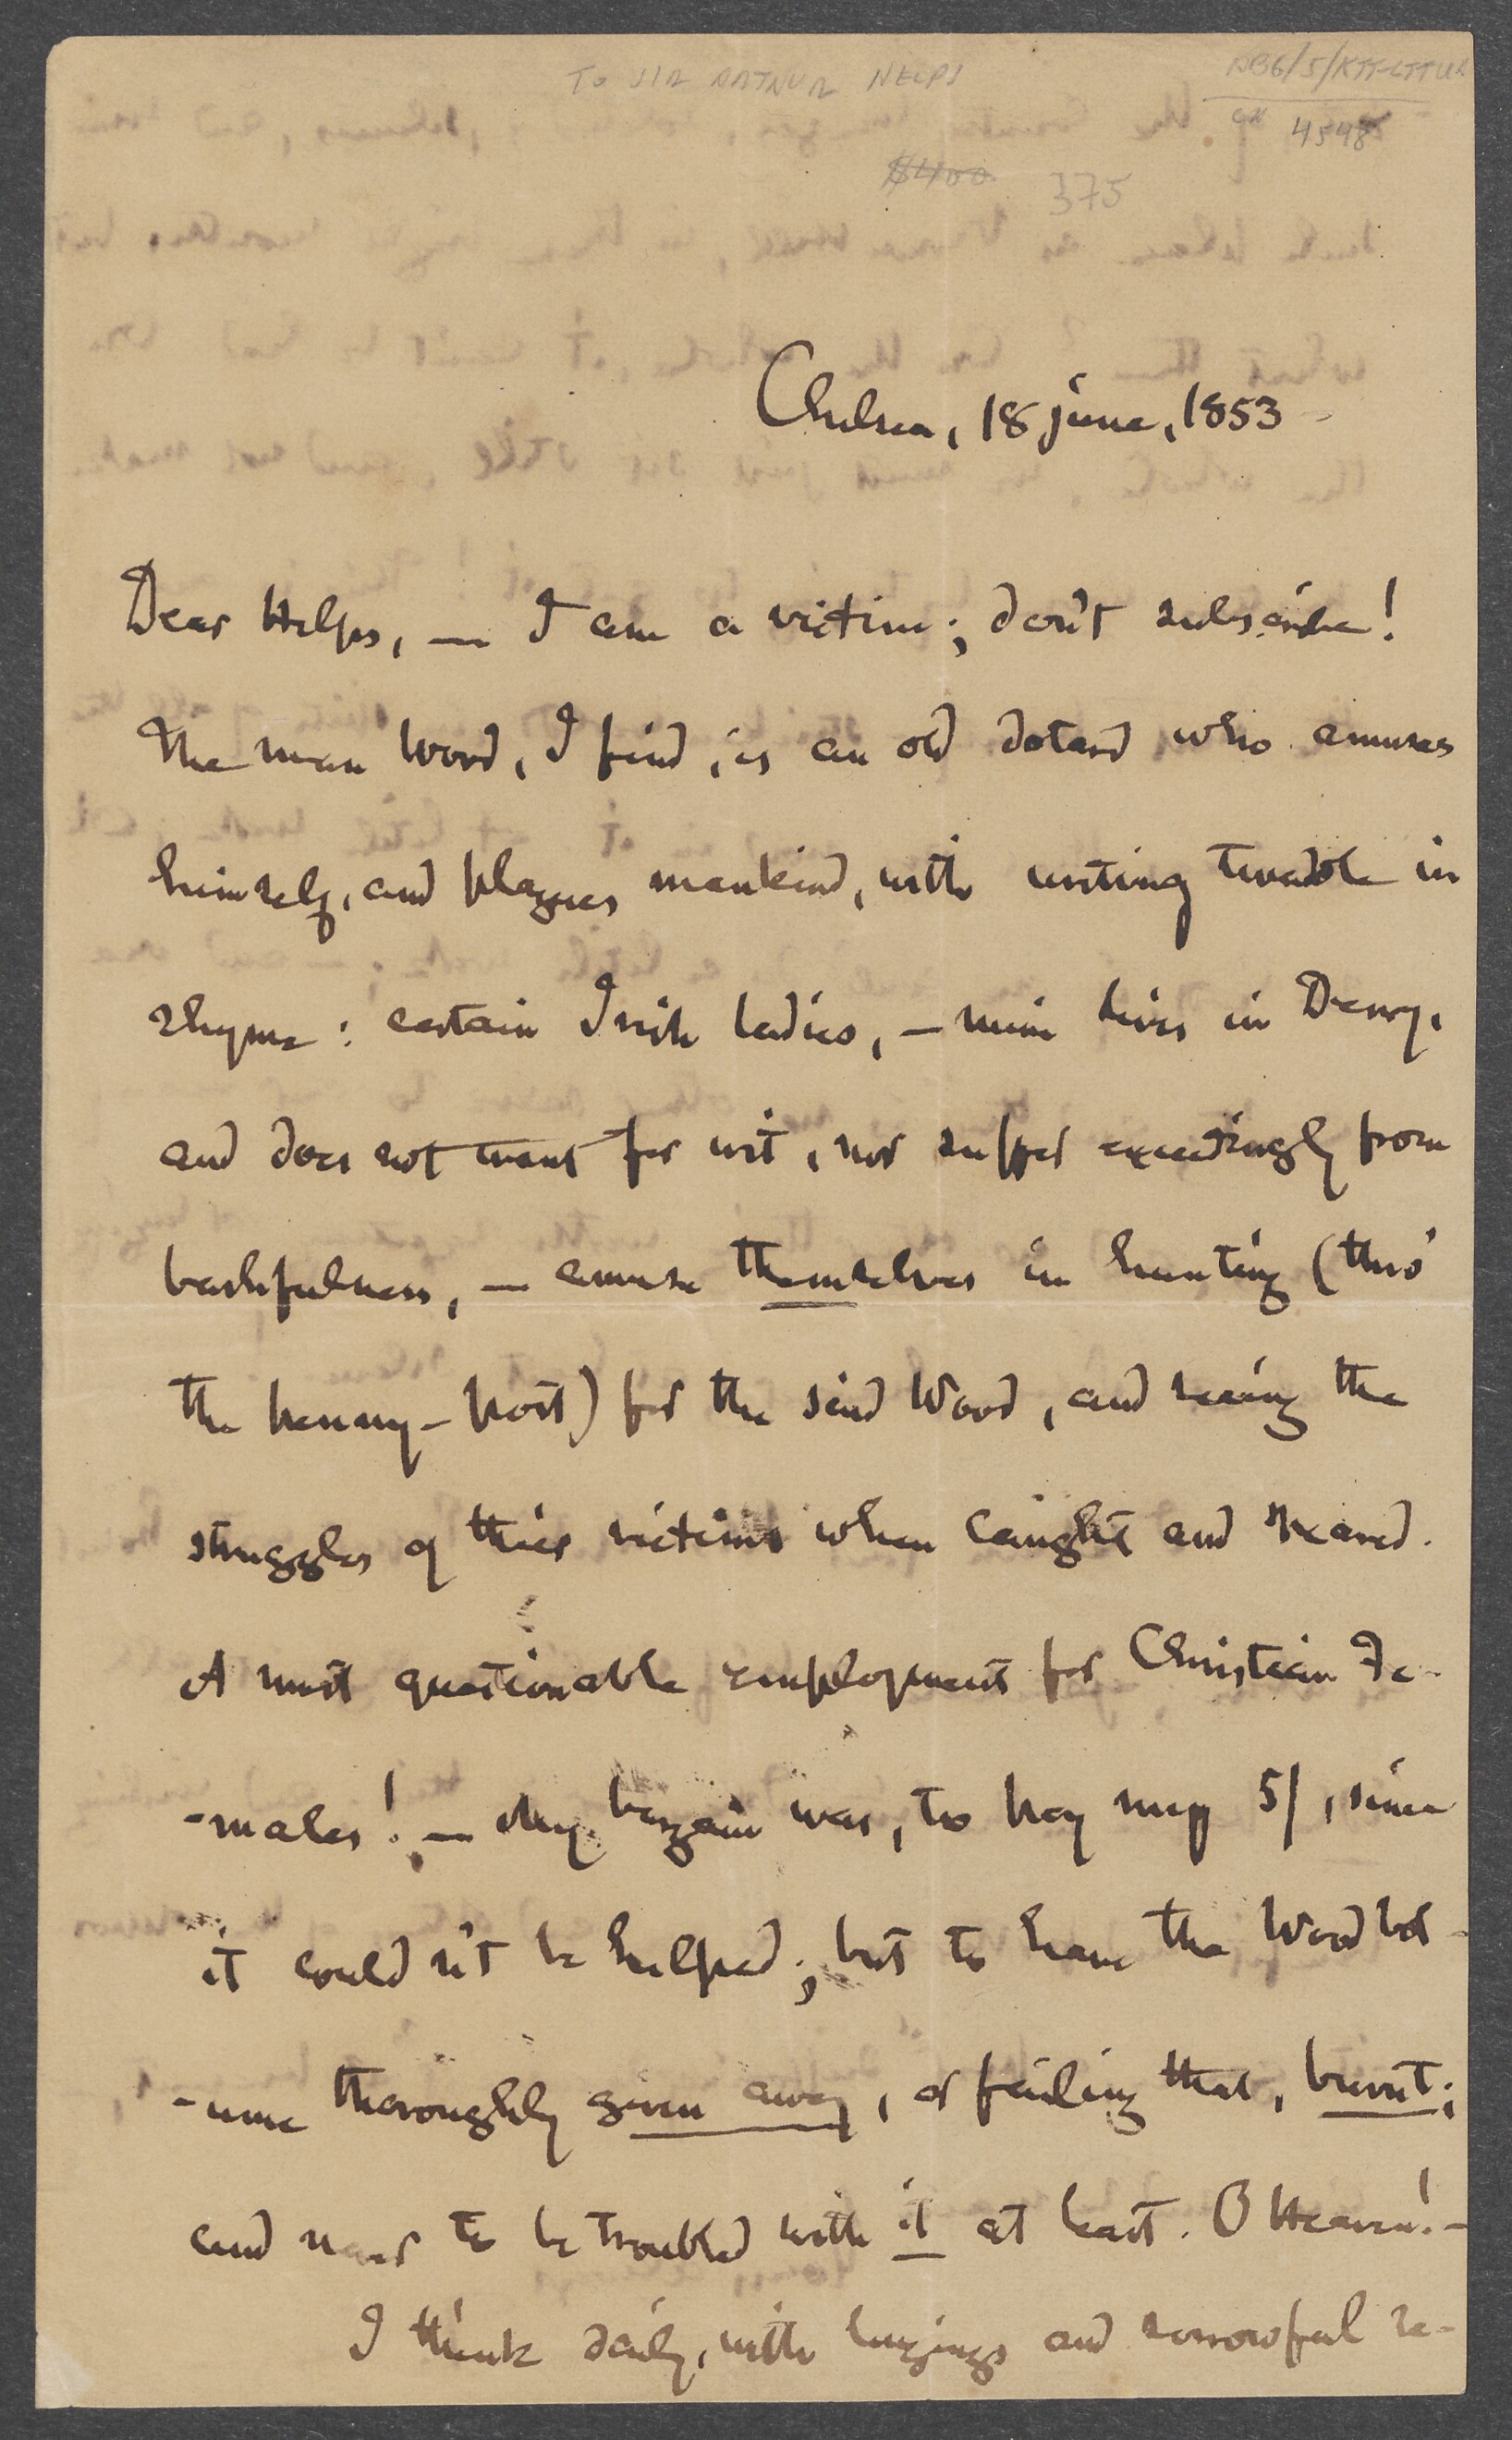 TO SIR ARTHUR HELPS
4548
$400 375
Chelsea, 18 june, 1853
Dear Helps, — I am a victim; don't subscribe!
The man Wood, I find, is an old dotard who amuses
himself, and plagues mankind, with writing twaddle in
rhyme: certain Irish ladies, — mine lives in Derry,
and does not want for wit, nor suffer exceedingly from
bashfulness, — amuse themselves in hunting (thro'
the penny-post) for the said Wood, and seeing the
struggles of their victims when caught and speared.
A most questionable employment for Christian Fe-
-males! — My bargain was, to pay my 5/, since
it could n't be helped; but to have the Wood vol-
-ume thoroughly given away, or failing that, burnt;
and never to be troubled with it at least. O Heaven! —
I think daily, with longings and sorrowful re-